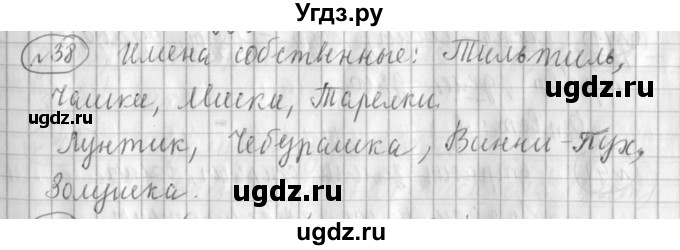 Угдз.ру
№38 Имена собственные: Тильтиль,
Чашки, Миски, Тарелки.
ugdz.ru
ugdz.ru
Лунтик, Чебурашка, Винни-Пух,
ugdz.ru
Золушка.
ugdz.ru
ugdz.ru
ugdz.ru